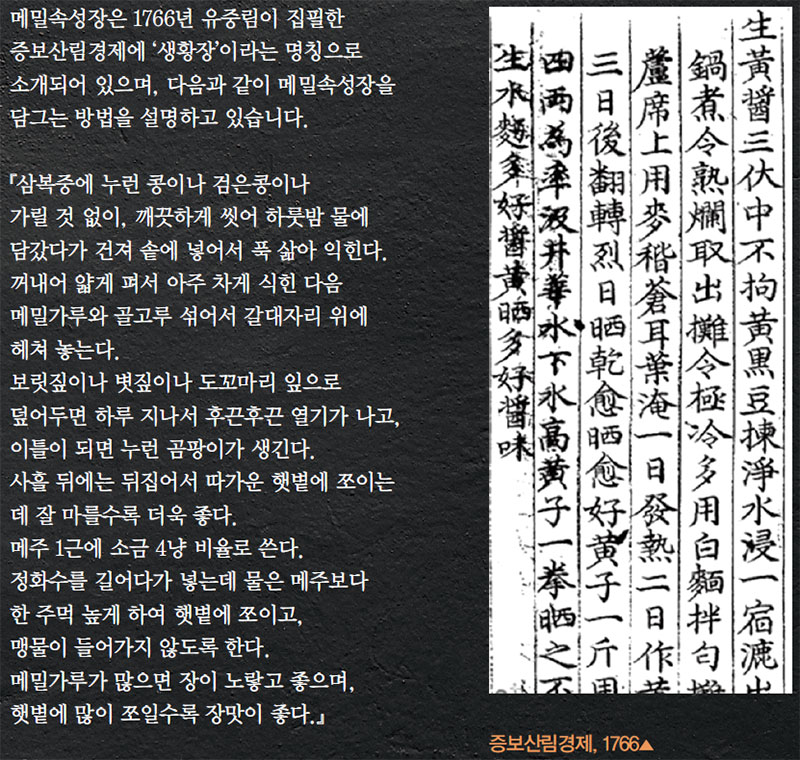 메밀속성장은 1766년 유중림이 집필한
증보산림경제에 ‘생황장’이라는 명칭으로
소개되어 있으며, 다음과 같이 메밀속성장을
담그는 방법을 설명하고 있습니다.
『삼복중에 누런 콩이나 검은콩이나
가릴 것 없이, 깨끗하게 씻어 하룻밤 물에
담갔다가 건져 솥에 넣어서 푹 삶아 익힌다.
꺼내어 얇게 펴서 아주 차게 식힌 다음
메밀가루와 골고루 섞어서 갈대자리 위에
헤쳐 놓는다.
보릿짚이나 볏짚이나 도꼬마리 잎으로
덮어두면 하루 지나서 후끈후끈 열기가 나고,
이틀이 되면 누런 곰팡이가 생긴다.
사흘 뒤에는 뒤집어서 따가운 햇볕에 쪼이는
데 잘 마를수록 더욱 좋다.
메주 1근에 소금 4냥 비율로 쓴다.
정화수를 길어다가 넣는데 물은 메주보다
한 주먹 높게 하여 햇볕에 쪼이고,
맹물이 들어가지 않도록 한다.
메밀가루가 많으면 장이 노랗고 좋으며,
햇볕에 많이 쪼일수록 장맛이 좋다.』
生黃醬三伏中不拘黃黑豆揀淨水浸一宿漉出
鍋煮令熟爛取出攤令極冷多用白麵拌勻攤
蘆席上用麥稭蒼耳葉淹一日發熱二日作黃
三日後翻轉烈日晒乾愈晒愈好黃子一斤用
四兩爲率汲井華水下水高黃子一拳晒之不
生水麵多好醬黃晒多好醬味
증보산림경제, 1766▲